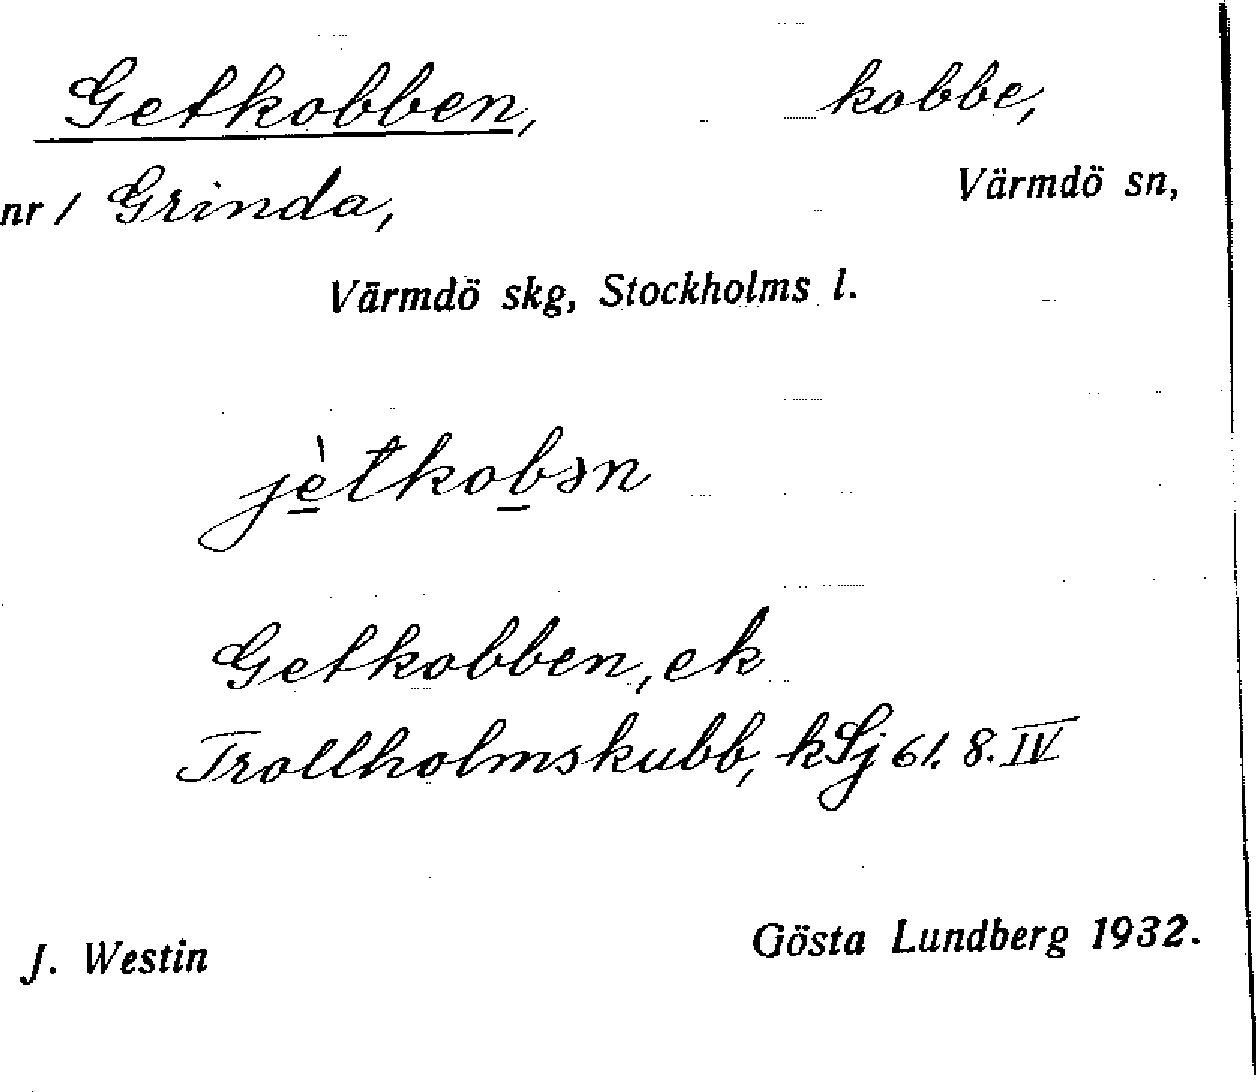 Getkobben, kobbe,
nr 1 Grinda, Värmdö sn,
Värmdö skg, Stockholms l.
jètkobən
Getkobben, ek
Trollholmskubb, kSj 61. 8. IV
J. Westin Gösta Lundberg 1932.